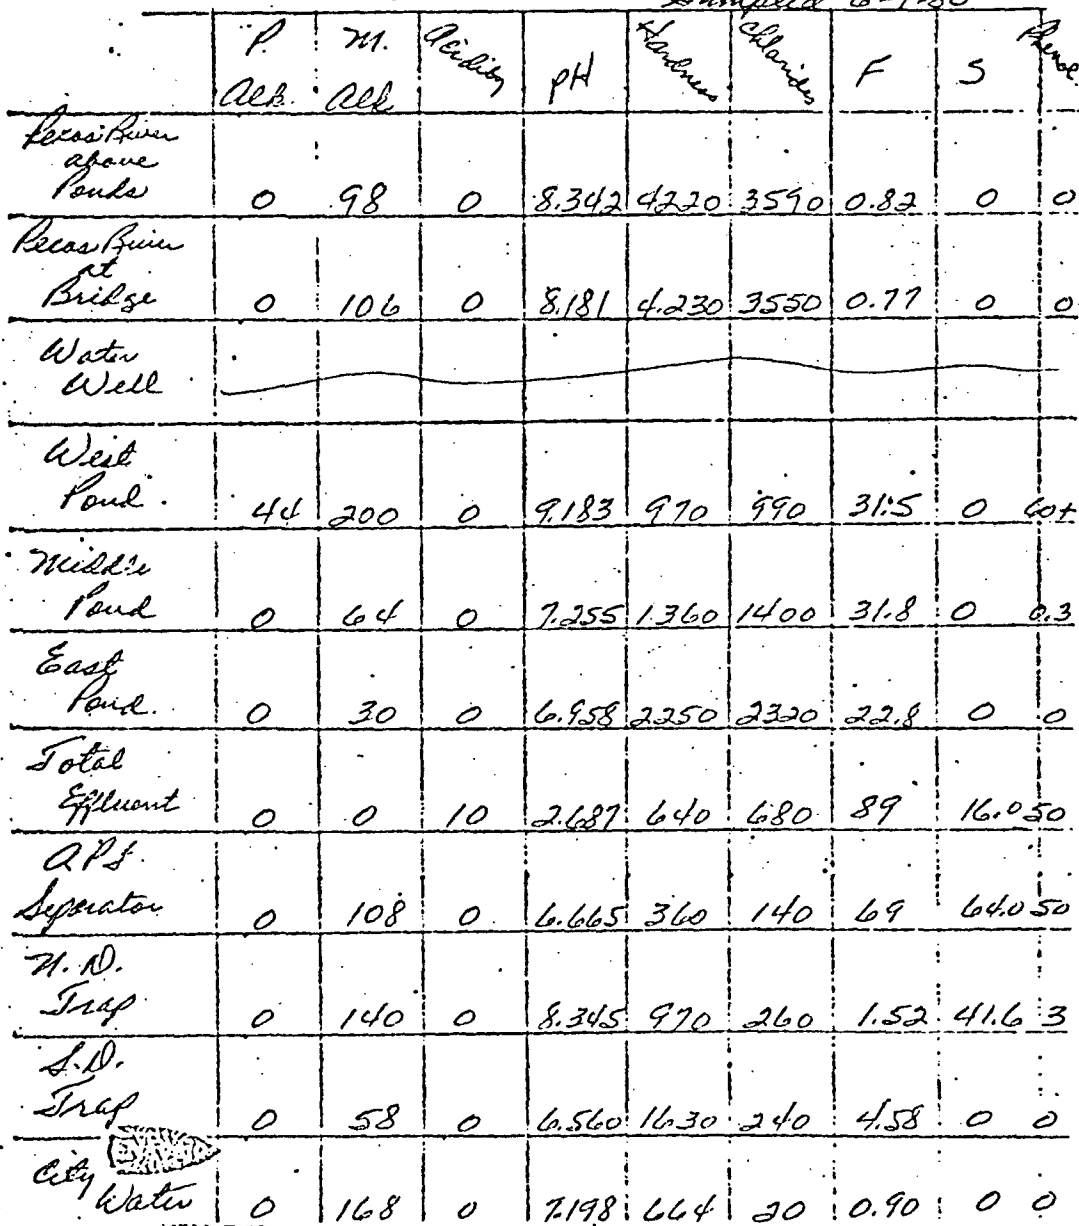 Sampled
P. Alk. M. Alk. Acidity pH Hardness Chlorides F S Phenol
Pecos River above Ponds 0 98 0 8.342 4220 3590 0.82 0 0
Pecos River at Bridge 0 106 0 8.181 4230 3550 0.77 0 0
Water Well
West Pond 44 200 0 9.183 970 990 31.5 0 60+
Middle Pond 0 64 0 7.255 1360 1400 31.8 0 0.3
East Pond. 0 30 0 6.958 2250 2320 22.8 0 0
Total Effluent 0 0 10 2.687 640 680 89 16.0 50
API Separator 0 108 0 6.665 360 140 69 64.0 50
N.D. Trap 0 140 0 8.345 970 260 1.52 41.6 3
S.D. Trap 0 58 0 6.560 1630 240 4.58 0 0
City Water 0 168 0 7.198 664 20 0.90 0 0